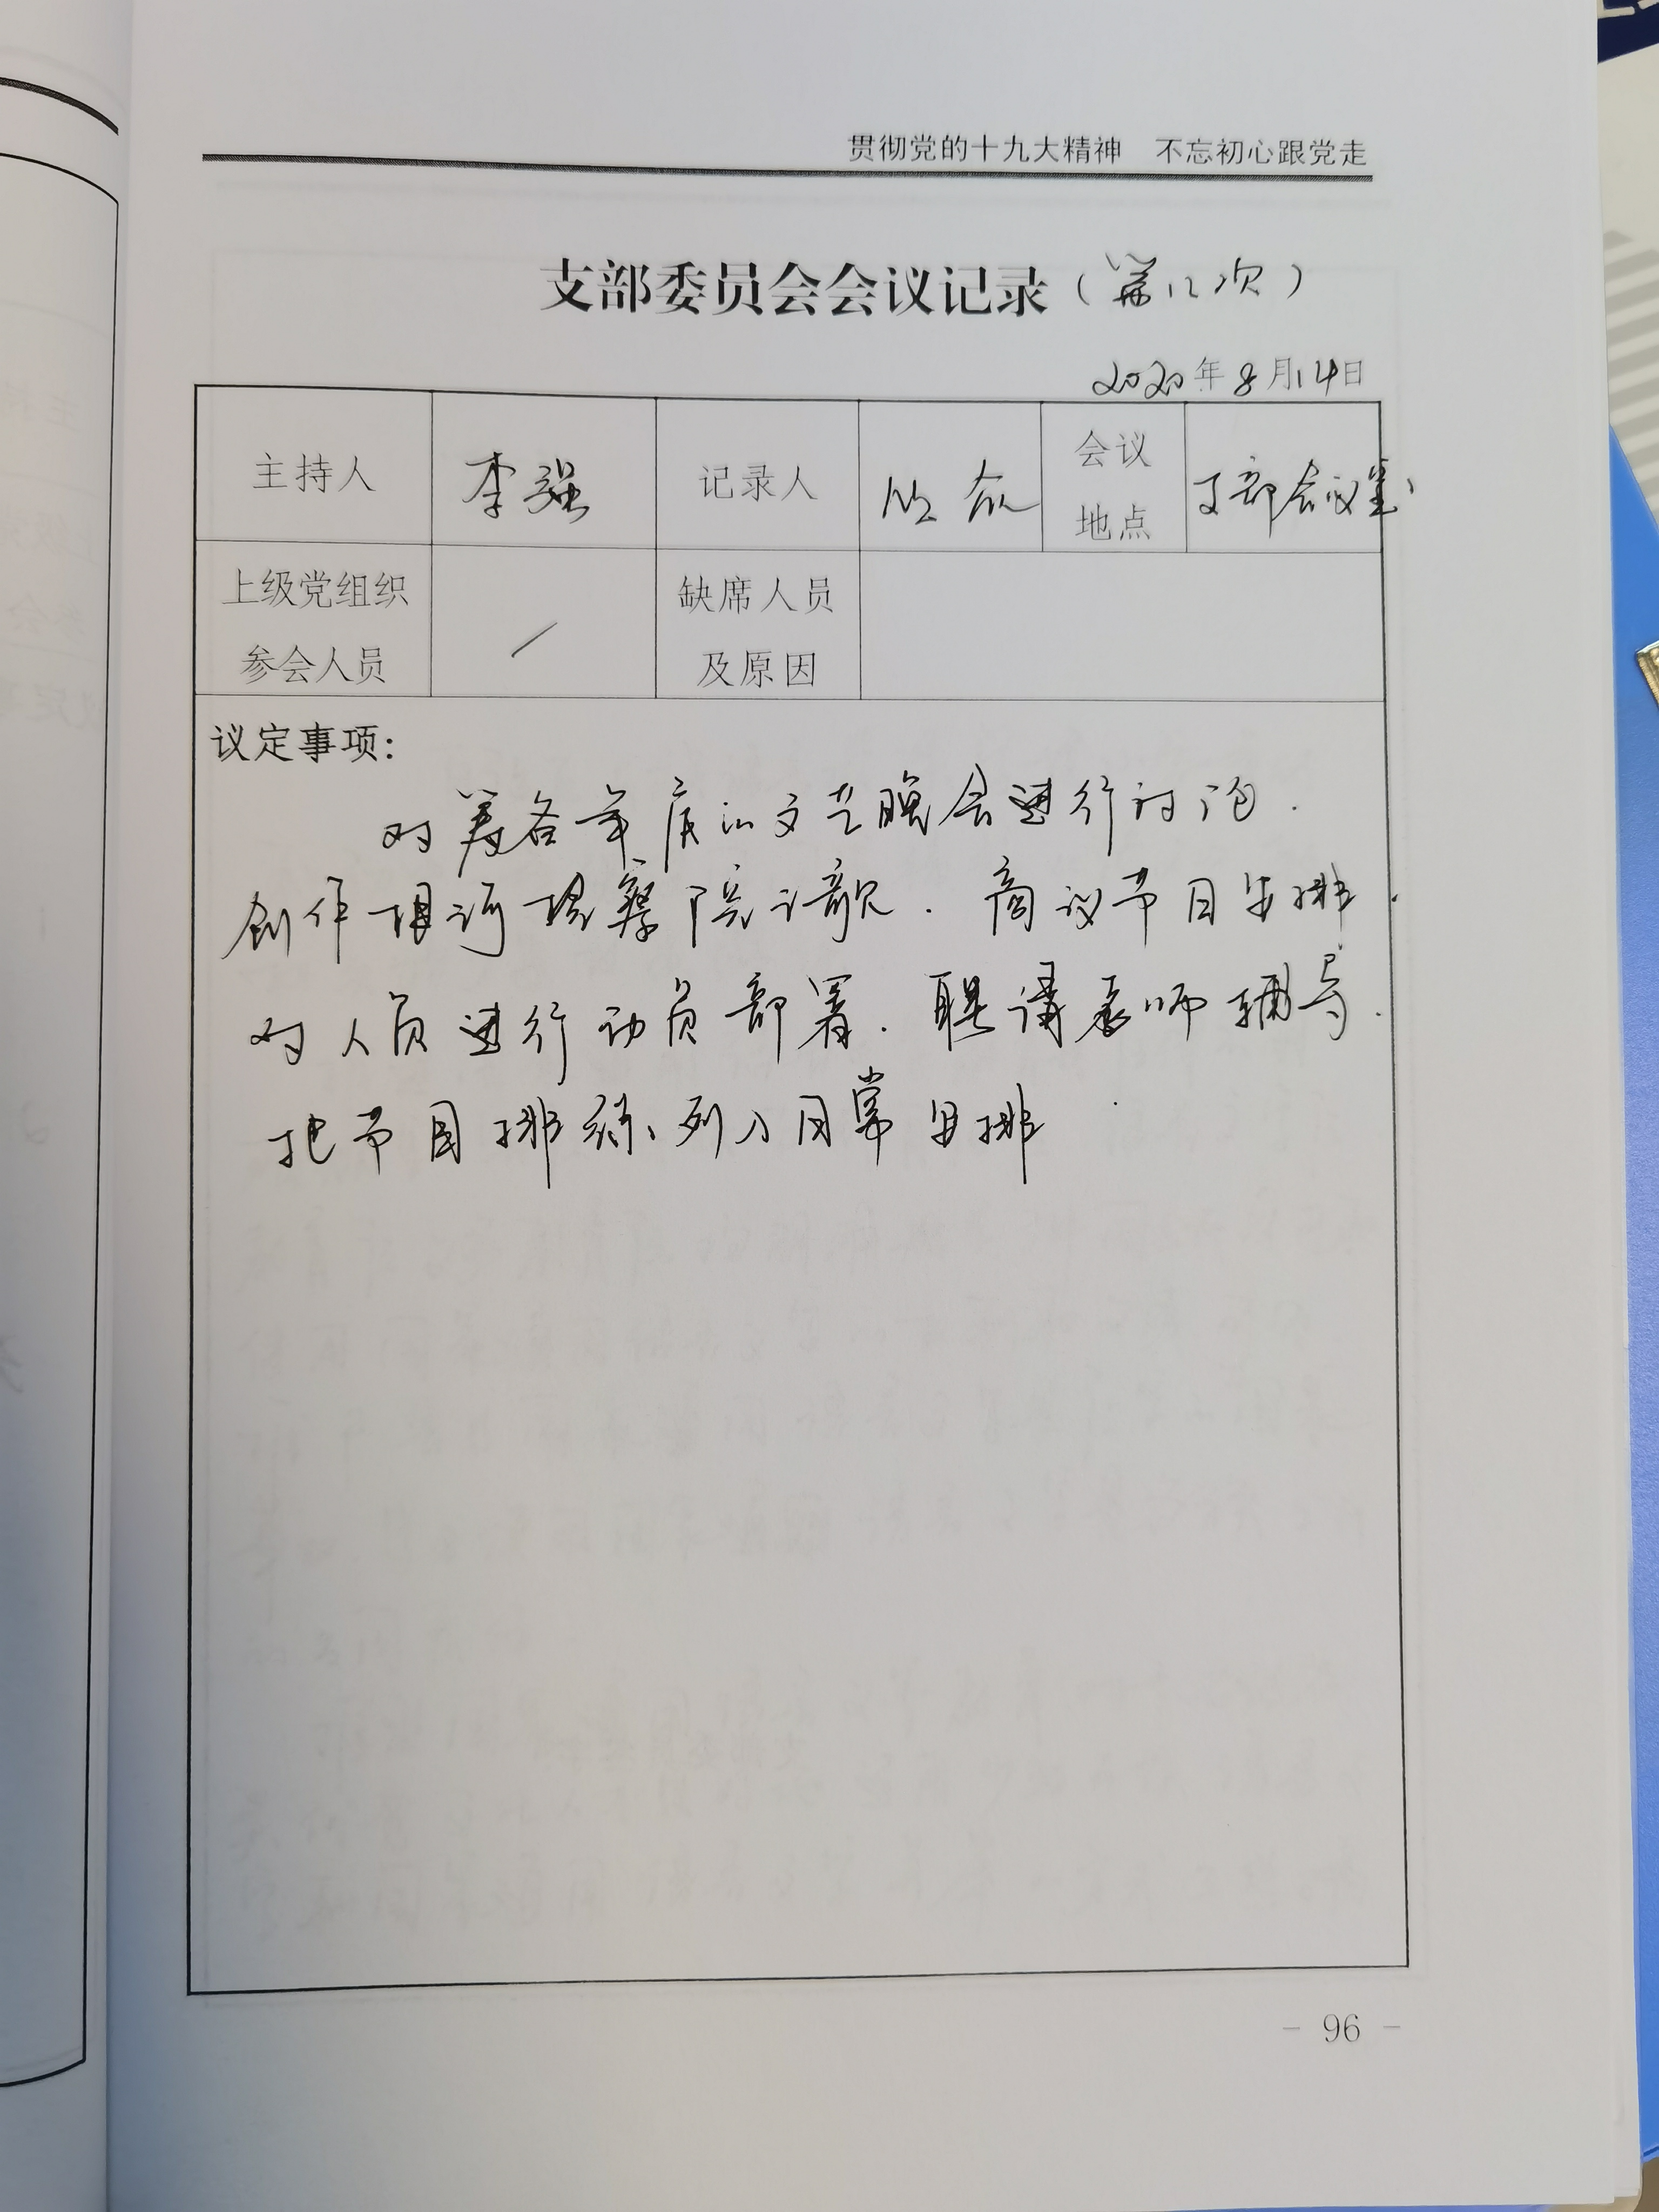 贯彻党的十九大精神 不忘初心跟党走
支部委员会会议记录(第12次)
2020年8月14日
主持人 李强 记录人 会议地点 支部会议室
上级党组织参会人员 / 缺席人员及原因
议定事项:
对筹备年底的文艺晚会进行讨论.
创作 检察院之歌.商议节目安排.
对人员进行动员部署.聘请老师辅导.
把节目排练列入日常安排
- 96 -